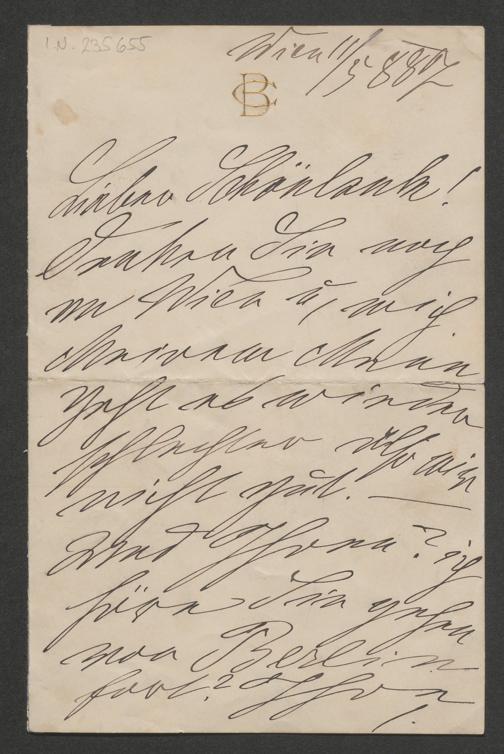 I.N. 235655
Wien 11/5 887
BC
Lieber Schönlank!
Denken Sie noch
an Wien u, mich
Meinem Mann
geht es wieder
schlechter also mir
nicht gut. —
Und Ihnen? ich
höre Sie gehen
von Berlin
fort?